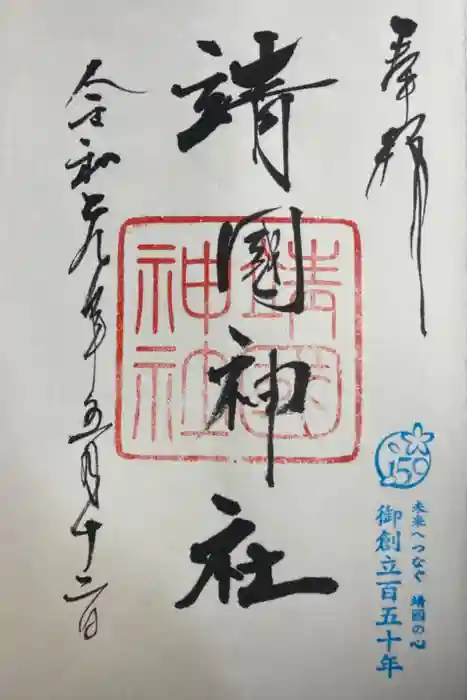 奉拝
靖國神社
靖國神社
令和元年五月十二日
150
未来へつなぐ 靖國の心
御創立百五十年